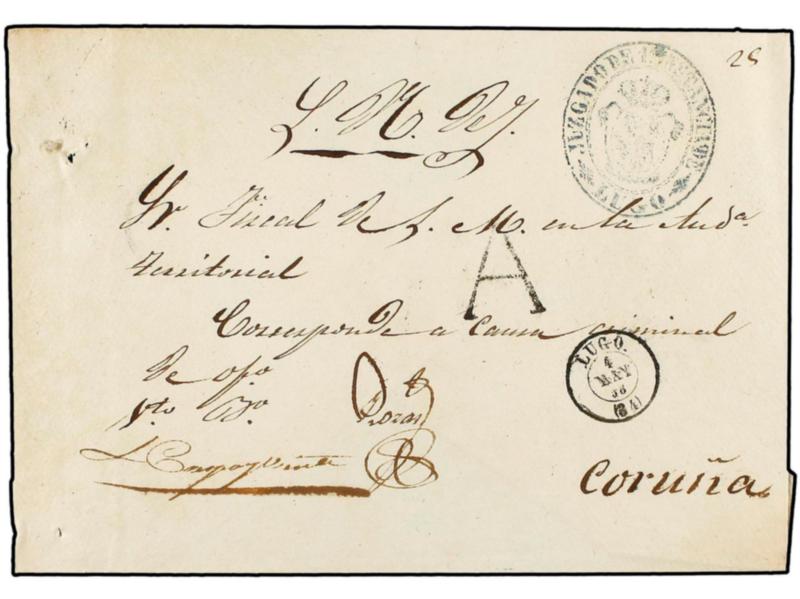 28
JUZGADO DE 1ª INSTANCIA DE LUGO
S. N. De J.
Sr. Fiscal de S. M. en la Auda.
Territorial
A
Corresponde a causa criminal
de ofo.
LUGO.
4
MAY
56
(34)
Vto. Bo.
Rozas
Coruña